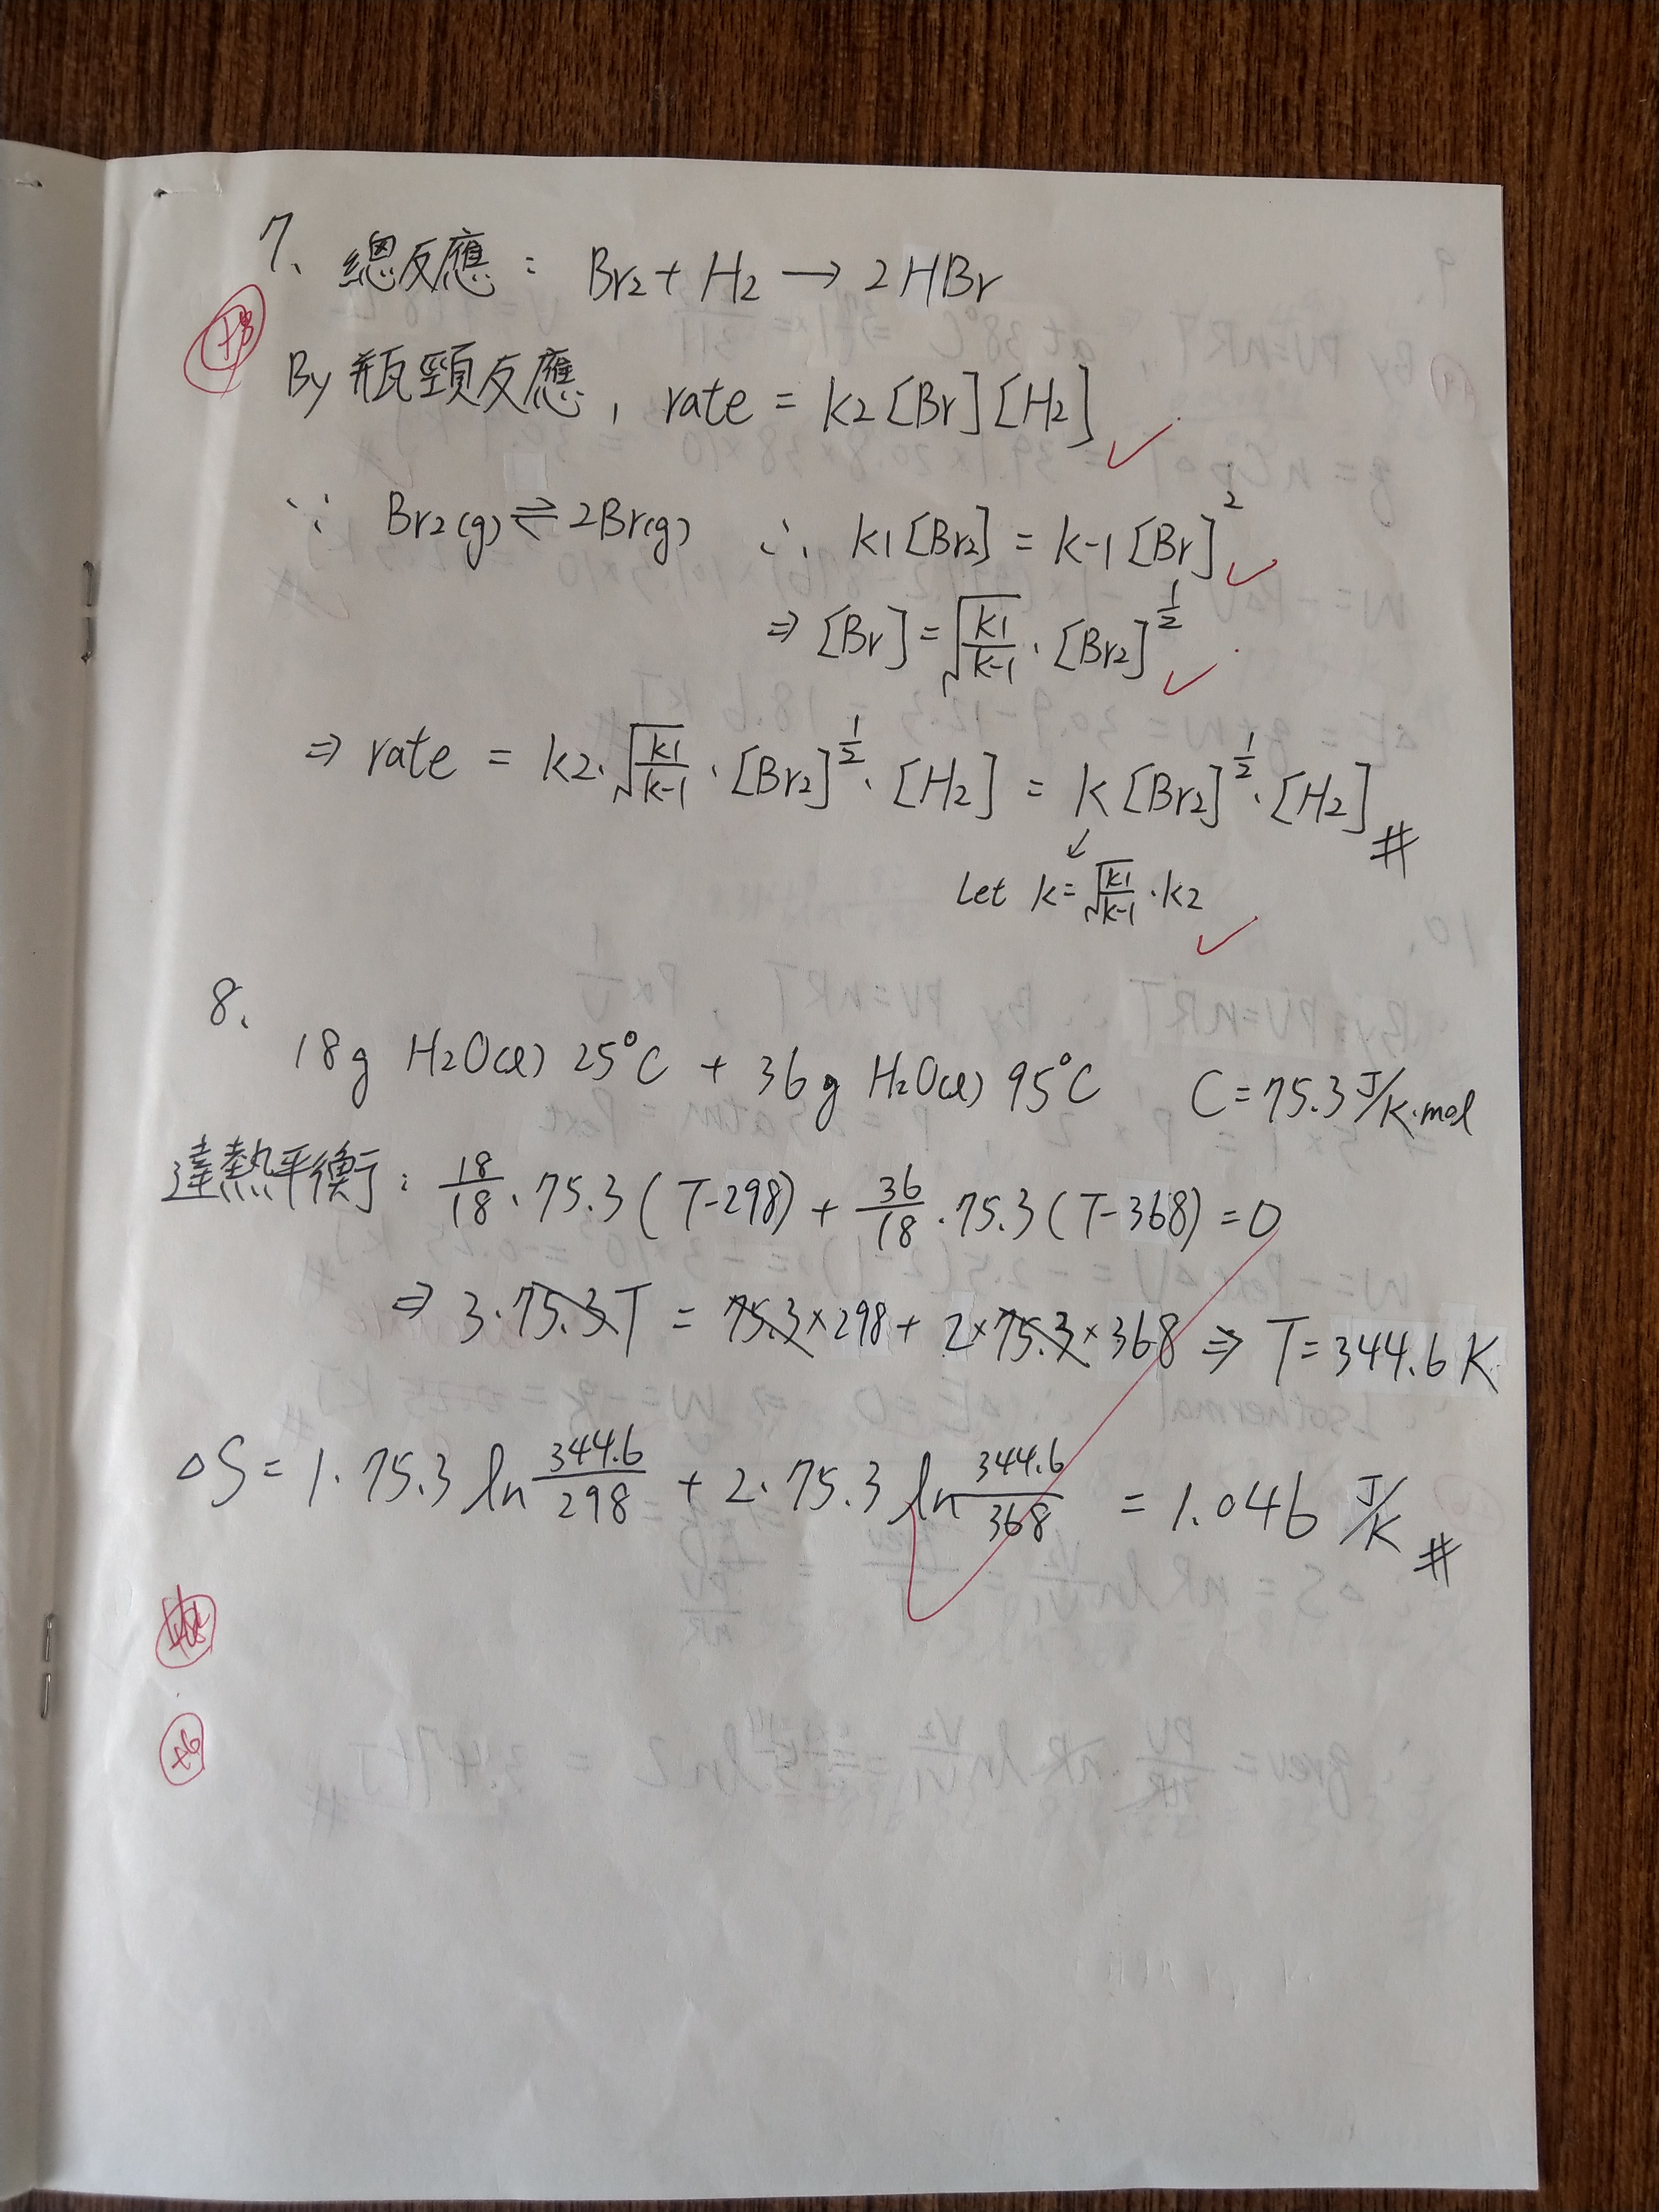 7、總反應：Br2 + H2 → 2HBr
By 瓶頸反應, rate = k2[Br][H2]
∵ Br2(g) ⇌ 2Br(g) ∴ k1[Br2] = k-1[Br]^2
⇒ [Br] = √(k1/k-1) · [Br2]^(1/2)
⇒ rate = k2·√(k1/k-1) · [Br2]^(1/2) · [H2] = k[Br2]^(1/2) · [H2] #
Let k = √(k1/k-1) · k2
8、
18g H2O(l) 25°C + 36g H2O(l) 95°C C = 75.3 J/K·mol
達熱平衡：18/18 · 75.3 (T-298) + 36/18 · 75.3 (T-368) = 0
⇒ 3·75.3T = 75.3×298 + 2×75.3×368 ⇒ T = 344.6 K
ΔS = 1·75.3 ln 344.6/298 + 2·75.3 ln 344.6/368 = 1.046 J/K #
+6